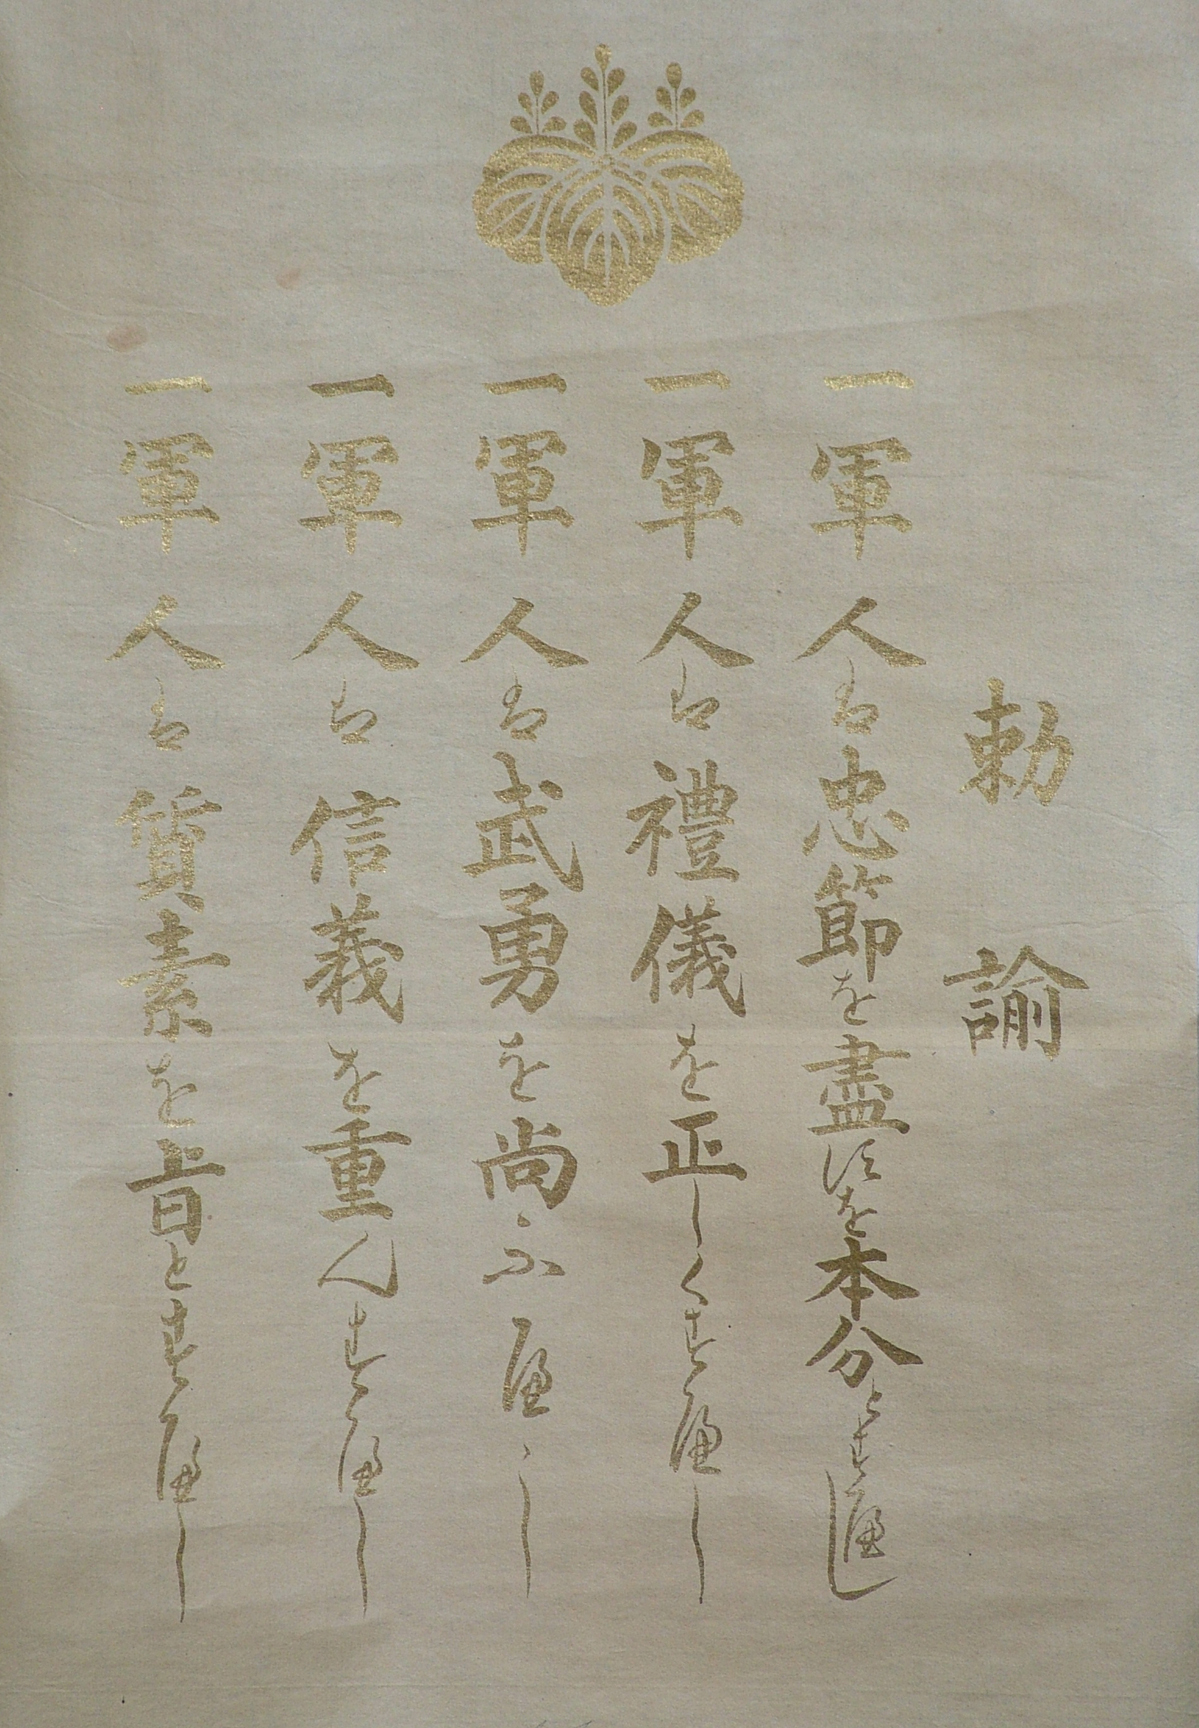 勅諭
一軍人は忠節を盡すを本分とすへし
一軍人は禮儀を正しくすへし
一軍人は武勇を尚ふへし
一軍人は信義を重んすへし
一軍人は質素を旨とすへし